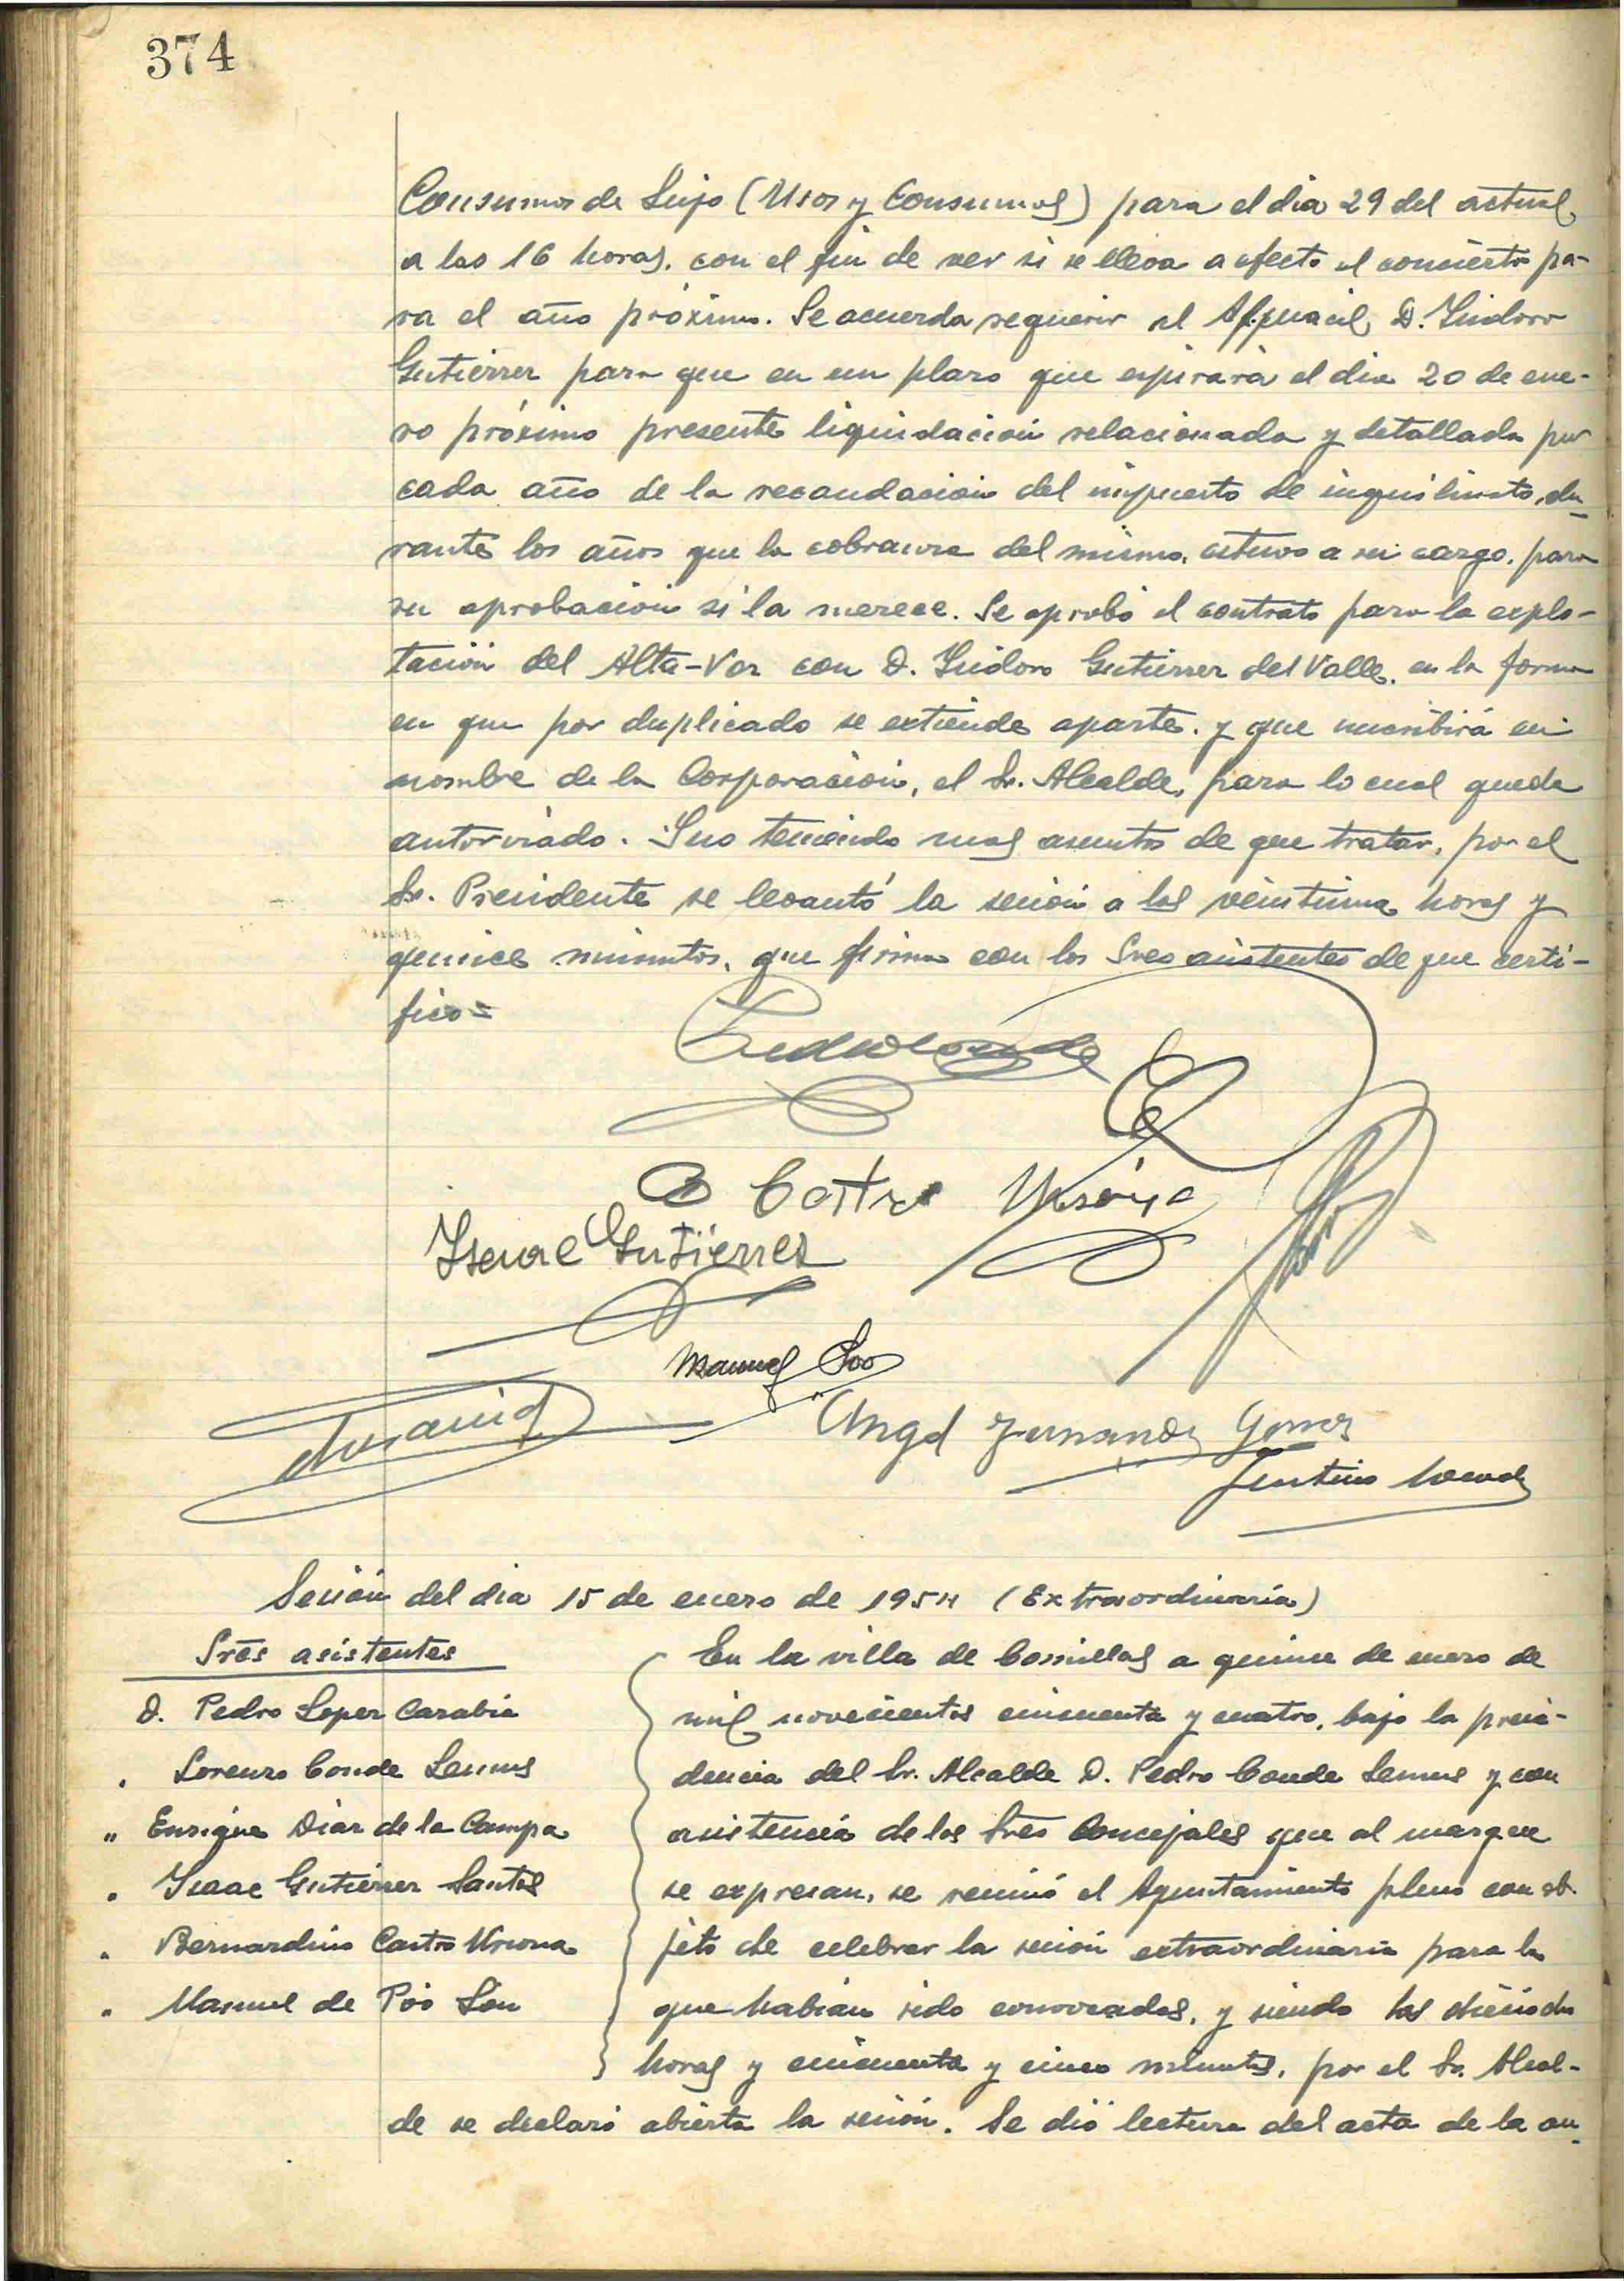 374
Consumos de Lujo (Usos y Consumos) para el dia 29 del actual
a las 16 horas, con el fin de ver si se lleva a efecto el concierto pa-
ra el año próximo. Se acuerda requerir al Alguacil D. Isidoro
Gutierrez para que en un plazo que expirará el dia 20 de ene-
ro próximo presente liquidación relacionada y detallada por
cada año de la recaudación del impuesto de inquilinato, du-
rante los años que la cobranza del mismo, estuvo a su cargo, para
su aprobación si la merece. Se aprobó el contrato para la explo-
tación del Alta-Voz con D. Isidoro Gutierrez del Valle, en la forma
en que por duplicado se extiende aparte, y que suscribirá en
nombre de la Corporación, el Sr. Alcalde, para lo cual queda
autorizado. Y no teniendo mas asuntos de que tratar, por el
Sr. Presidente se levantó la sesión a las veintiuna horas y
quince minutos, que firma con los Sres asistentes de que certi-
fico=
B Castro Ursoña
Isaac Gutierrez
Manuel Poo
Angel Fernandez Gomez
Sesión del dia 15 de enero de 1954 (Extraordinaria)
Sres asistentes
D. Pedro Lopez Carabia
" Lorenzo Conde Lemus
" Enrique Diaz de la Campa
" Isaac Gutierrez Santos
" Bernardino Castro Ursona
" Manuel de Poo
En la villa de Comillas a quince de enero de
mil novecientos cincuenta y cuatro, bajo la presi-
dencia del Sr. Alcalde D. Pedro Conde Lemus y con
asistencia de los Sres Concejales que al margen
se expresan, se reunió el Ayuntamiento pleno con ob-
jeto de celebrar la sesión extraordinaria para la
que habian sido convocados, y siendo las dieciocho
horas y cincuenta y cinco minutos, por el Sr. Alcal-
de se declaró abierta la sesión. Se dió lectura del acta de la an-